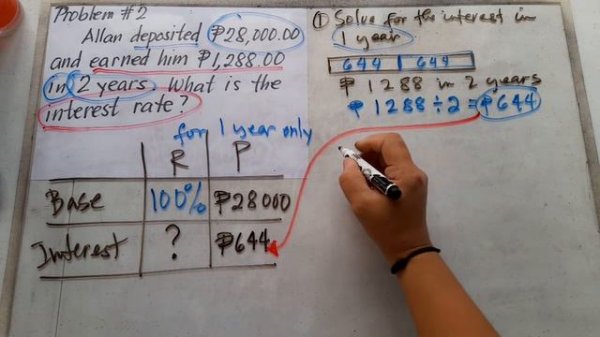 Problem #2
Allan deposited ₱28,000.00
and earned him ₱1,288.00
in 2 years. What is the
interest rate?
for 1 year only
R P
Base 100% ₱28000
Interest ? ₱644
① Solve for the interest in
1 year
644 644
₱ 1288 in 2 years
₱ 1288 ÷ 2 = ₱644